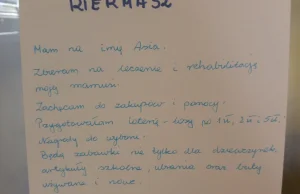 KIERMASZ
Mam na imię Asia.
Zbieram na leczenie i rehabilitację
mojej mamusi.
Zachęcam do zakupów i pomocy.
Przygotowałam loterię - losy po 1zł, 2zł i 5zł.
Nagrody do wyboru.
Będą zabawki nie tylko dla dziewczynek,
artykuły szkolne, ubrania oraz buty
używane i nowe.